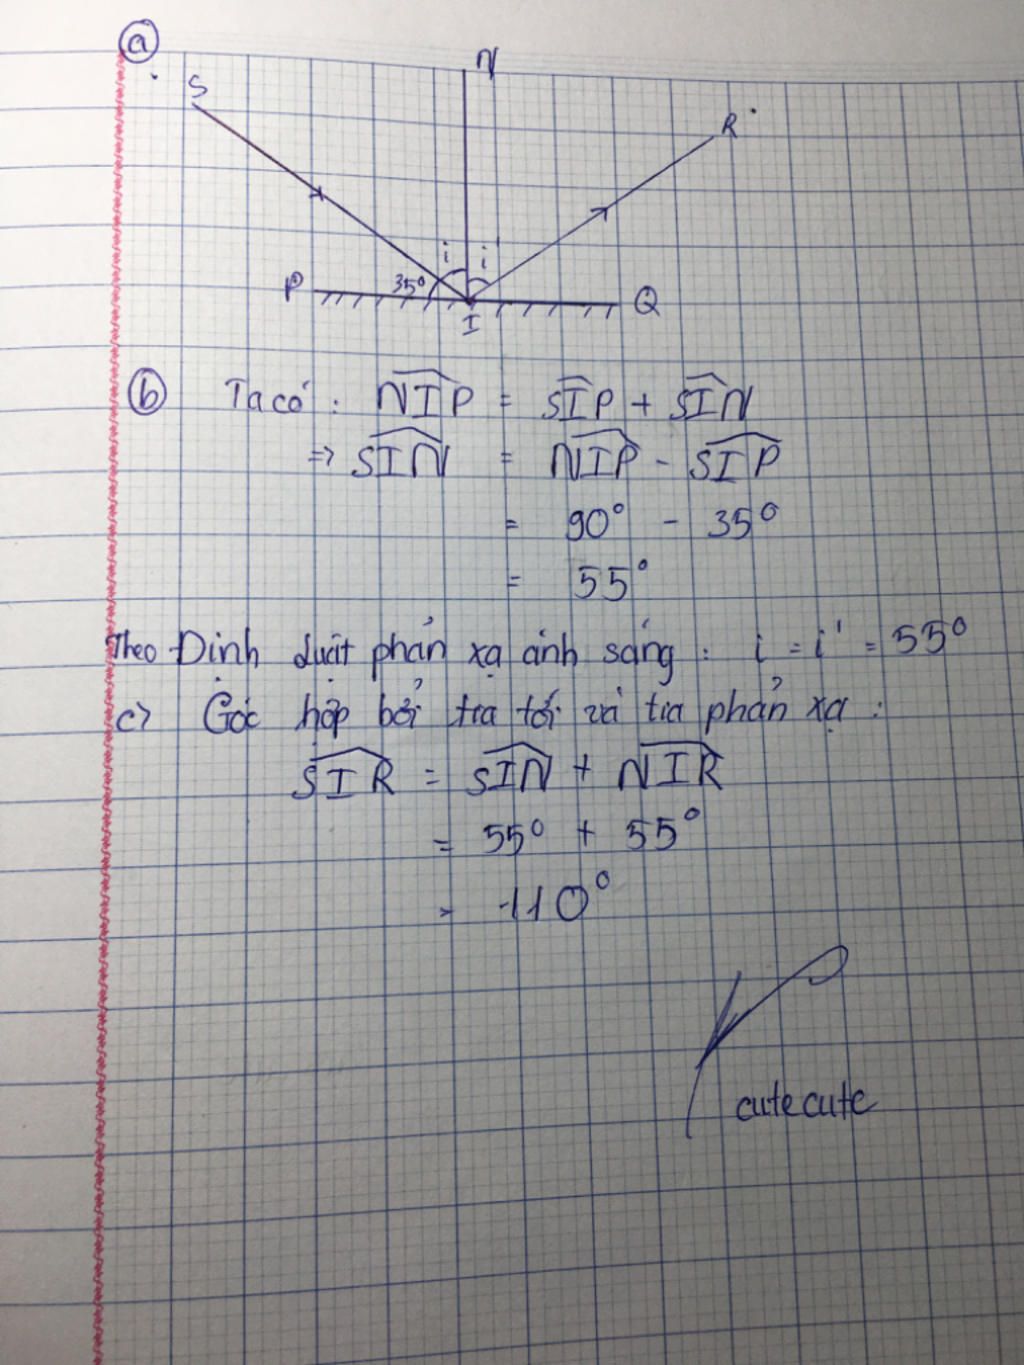 a
S
N
R
i
i'
35°
P
Q
I
b Ta có: NIP = SIP + SIN
=> SIN = NIP - SIP
= 90° - 35°
= 55°
Theo Định luật phản xạ ánh sáng: i = i' = 55°
c) Góc hợp bởi tia tới và tia phản xạ:
SIR = SIN + NIR
= 55° + 55°
= 110°
cutecute